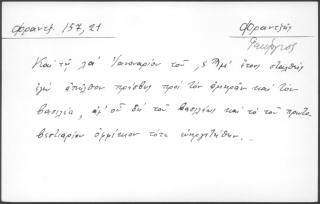 Φραντζ. 157, 21
Φραντζῆς
Γεώργιος
Καὶ τῇ λα' Ἰανουαρίου τοῦ , ϛ Ϡ μ' ἔτους σταλθεὶς
ἐγὼ ἀπῆλθον πρέσβυς πρὸς τὸν ἀμηρᾶν καὶ τὸν
βασιλέα, ἀφ' οὗ δὴ τοῦ βασιλέως καὶ τὸ τοῦ πρωτο
βεστιαρίου ὀφφίκιον τότε εὐηργετήθην.